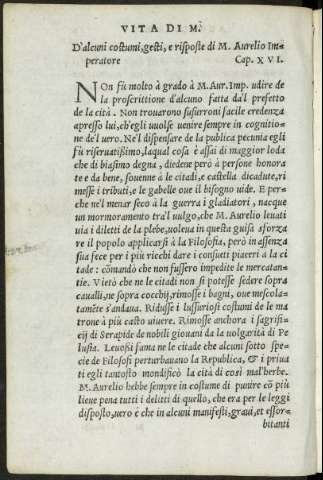 VITA DI M.
D'alcuni costumi, gesti, e risposte di M. Aurelio Im-
peratore Cap. XVI.
NOn fù molto à grado à M. Aur. Imp. udire de
la proscrittione d'alcuno fatta dal prefetto
de la cità. Non trouarono susurroni facile credenza
apresso lui, ch'egli uuolse uenire sempre in cognitio-
ne de'l uero. Ne'l dispensare de la publica pecunia egli
fù riseruatißimo, laqual cosa è assai di maggior loda
che di biasimo degna, diedene però à persone honora
te e da bene, souenne à le citadi, e castella dicadute, ri
messe i tributi, e le gabelle oue il bisogno uide. E per-
che ne'l menar seco à la guerra i gladiatori, nacque
un mormoramento tra'l uulgo, che M. Aurelio leuati
uia i diletti de la plebe, uoleua in questa guisa sforza
re il popolo applicarsi à la Filosofia, però in assenza
sua fece per i più ricchi dare i consueti piaceri a la ci
tade: cōmandò che non fussero impedite le mercatan-
tie. Vietò che ne le citadi non si potesse sedere sopra
caualli, ne sopra cocchij, rimosse i bagni, oue mescola-
tamēte s'andaua. Ridusse i lussuriosi costumi de le ma
trone à più casto uiuere. Rimosse anchora i sagrifi-
cij di Serapide de nobili giouani da la uolgarità di Pe
lusia. Leuoßi fama ne le citade che alcuni sotto spe-
cie de Filosofi perturbauano la Republica, & i priua
ti egli tantosto mondificò la cità di così mal'herbe.
M. Aurelio hebbe sempre in costume di punire cō più
lieue pena tutti i delitti di quello, che era per le leggi
disposto, uero è che in alcuni manifesti, graui, et essor-
bitanti